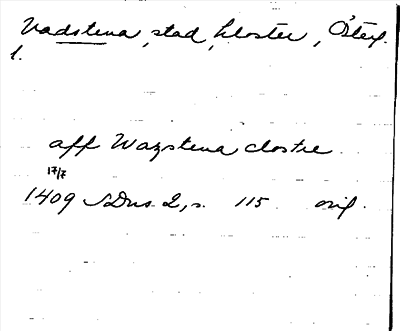 Vadstena, stad, kloster, Österg.
1.
aff Wazstena clostre
17/7
1409 SDns 2, s. 115 orig.